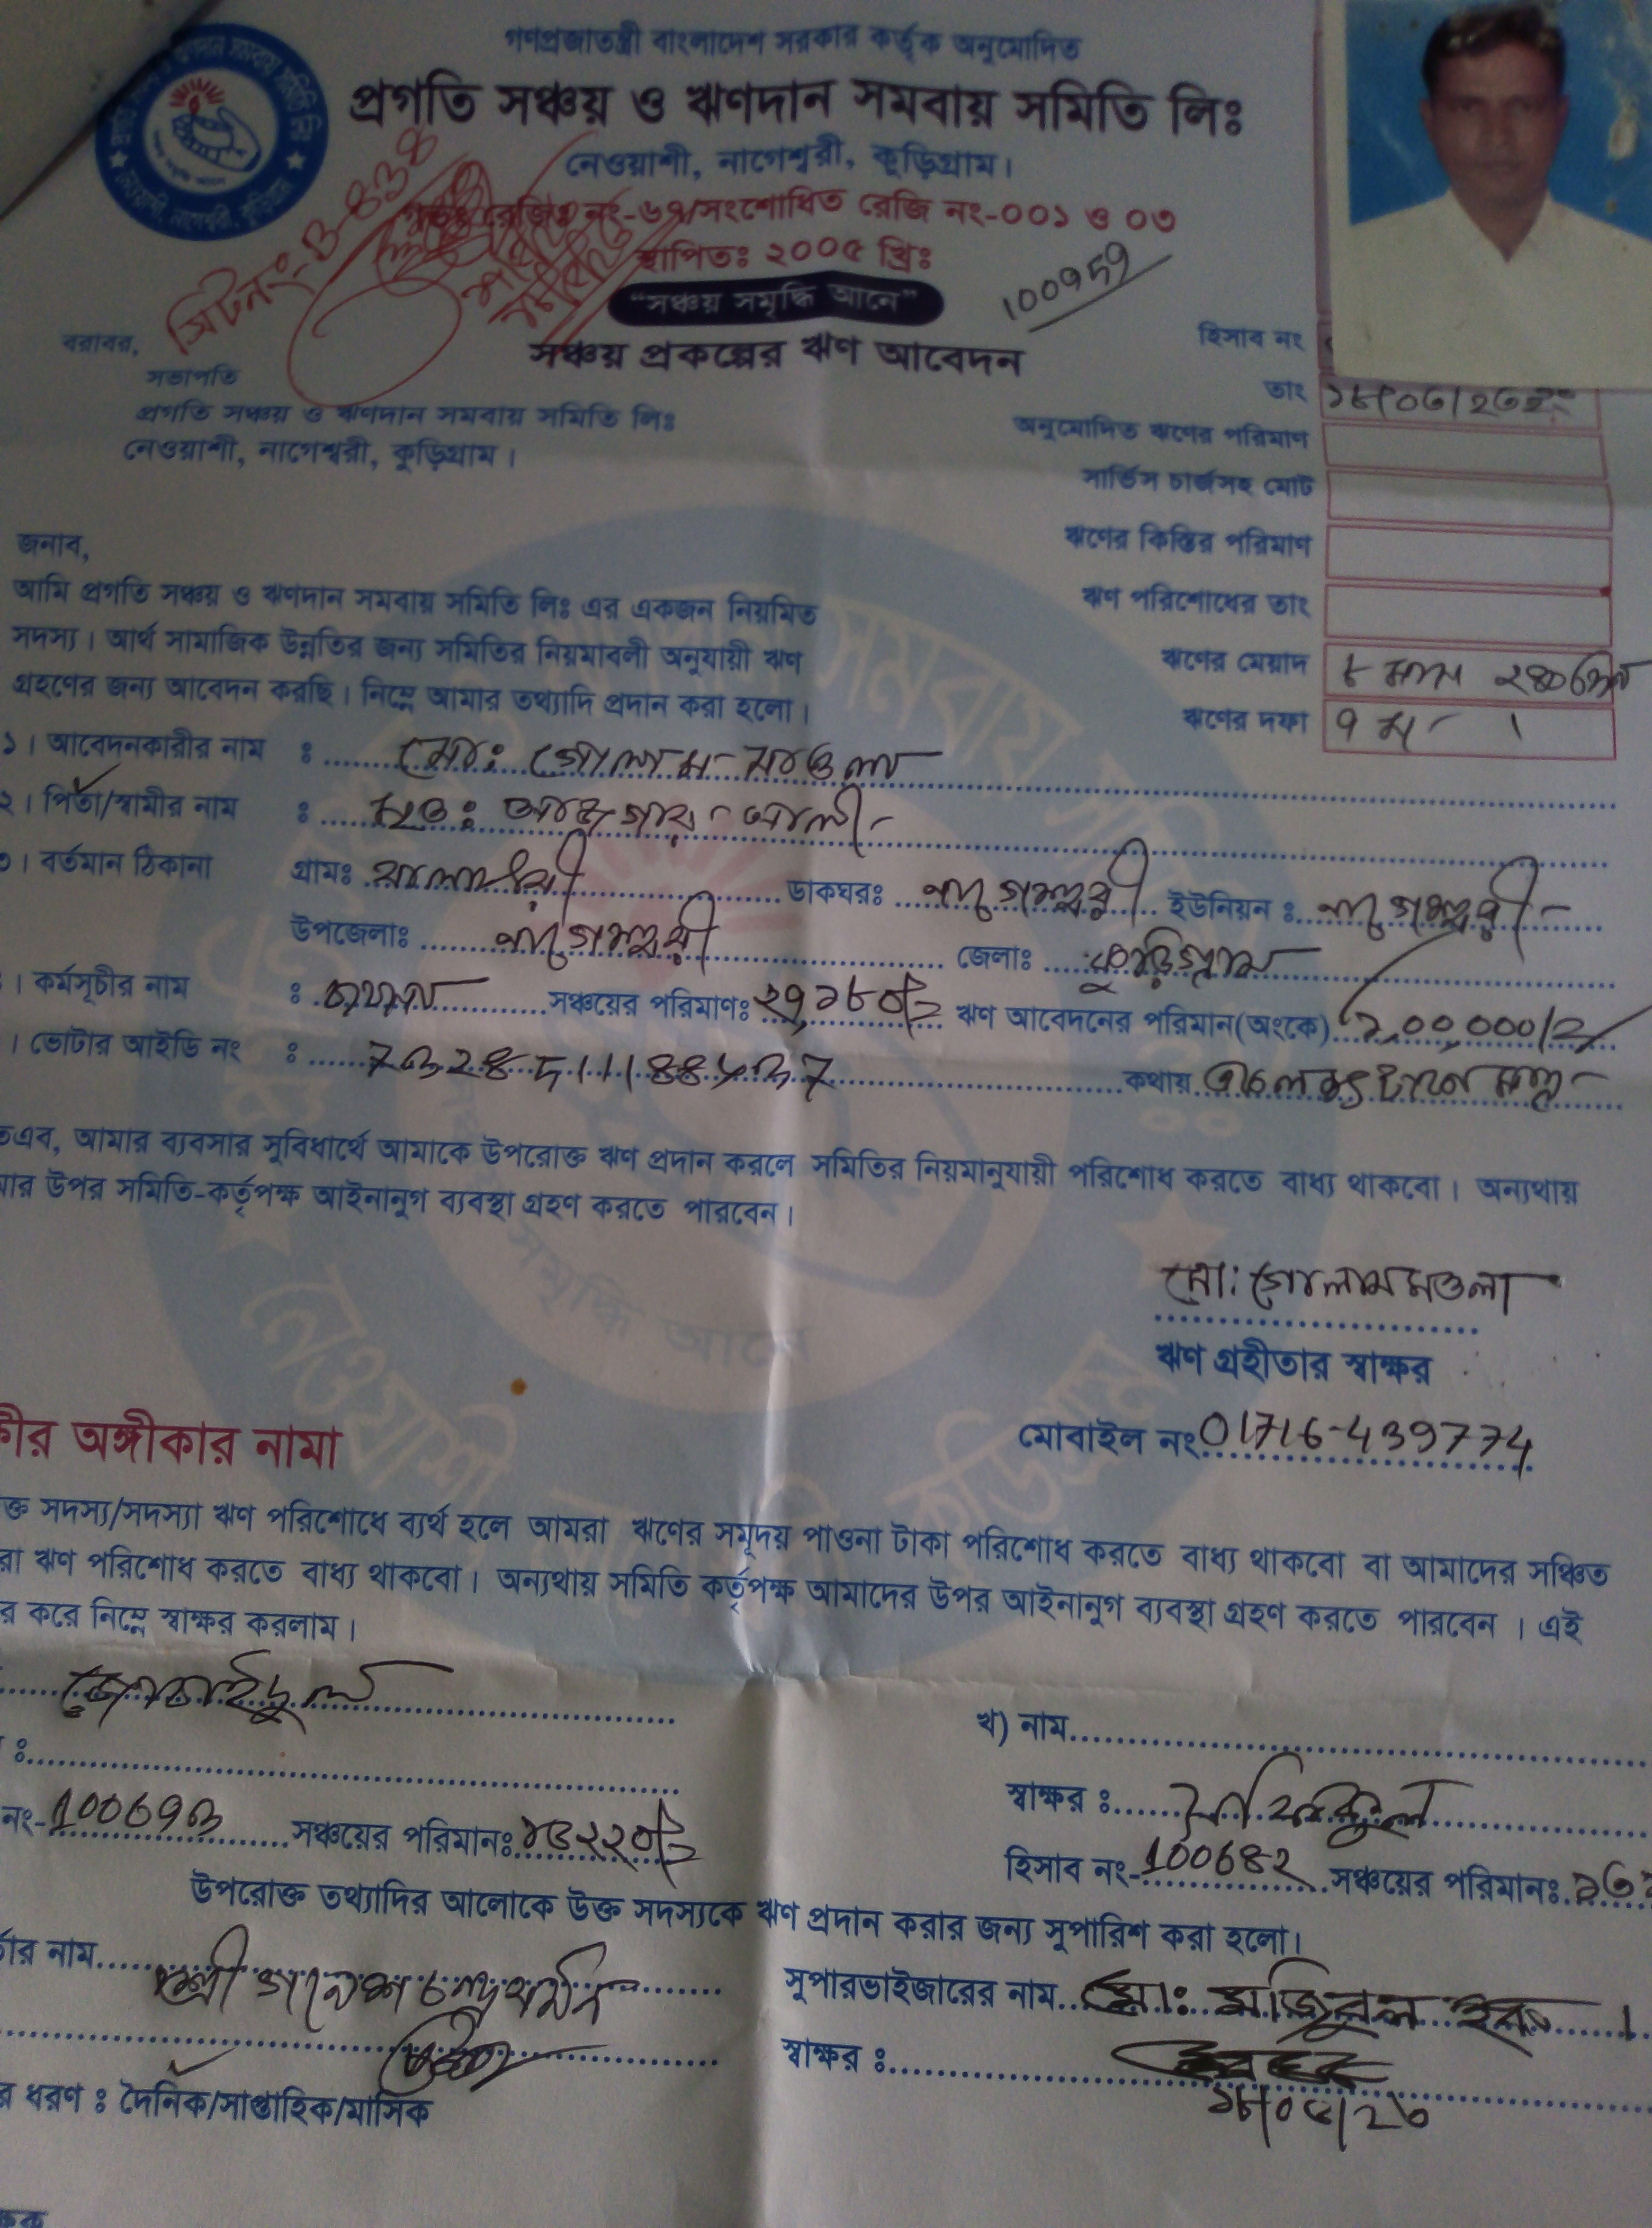 গণপ্রজাতন্ত্রী বাংলাদেশ সরকার কর্তৃক অনুমোদিত
প্রগতি সঞ্চয় ও ঋণদান সমবায় সমিতি লিঃ
নেওয়াশী, নাগেশ্বরী, কুড়িগ্রাম।
রেজিঃ নং-৬৭/সংশোধিত রেজি নং-০০১ ও ০৩
স্থাপিতঃ ২০০৫ খ্রিঃ
"সঞ্চয় সমৃদ্ধি আনে"
100959
সঞ্চয় প্রকল্পের ঋণ আবেদন
হিসাব নং
তাং
বরাবর,
সভাপতি
প্রগতি সঞ্চয় ও ঋণদান সমবায় সমিতি লিঃ
নেওয়াশী, নাগেশ্বরী, কুড়িগ্রাম।
অনুমোদিত ঋণের পরিমাণ
সার্ভিস চার্জসহ মোট
ঋণের কিস্তির পরিমাণ
ঋণ পরিশোধের তাং
ঋণের মেয়াদ ৮ মাস
ঋণের দফা ৭ ম
জনাব,
আমি প্রগতি সঞ্চয় ও ঋণদান সমবায় সমিতি লিঃ এর একজন নিয়মিত
সদস্য। আর্থ সামাজিক উন্নতির জন্য সমিতির নিয়মাবলী অনুযায়ী ঋণ
গ্রহণের জন্য আবেদন করছি। নিম্নে আমার তথ্যাদি প্রদান করা হলো।
১। আবেদনকারীর নাম : মোঃ গোলাম মাওলা
২। পিতা/স্বামীর নাম : মৃতঃ আজগার আলী
৩। বর্তমান ঠিকানা গ্রামঃ ডাকঘরঃ নাগেশ্বরী ইউনিয়ন : নাগেশ্বরী
উপজেলাঃ নাগেশ্বরী জেলাঃ কুড়িগ্রাম
। কর্মসূচীর নাম : সঞ্চয়ের পরিমাণঃ ২৭,১৮০/= ঋণ আবেদনের পরিমান(অংকে) ১,০০,০০০/=
। ভোটার আইডি নং : কথায় একলক্ষ টাকা মাত্র
তএব, আমার ব্যবসার সুবিধার্থে আমাকে উপরোক্ত ঋণ প্রদান করলে সমিতির নিয়মানুযায়ী পরিশোধ করতে বাধ্য থাকবো। অন্যথায়
মার উপর সমিতি-কর্তৃপক্ষ আইনানুগ ব্যবস্থা গ্রহণ করতে পারবেন।
মো:গোলাম মওলা
ঋণ গ্রহীতার স্বাক্ষর
মোবাইল নং 01716-439774
র অঙ্গীকার নামা
ক্ত সদস্য/সদস্যা ঋণ পরিশোধে ব্যর্থ হলে আমরা ঋণের সমূদয় পাওনা টাকা পরিশোধ করতে বাধ্য থাকবো বা আমাদের সঞ্চিত
রা ঋণ পরিশোধ করতে বাধ্য থাকবো। অন্যথায় সমিতি কর্তৃপক্ষ আমাদের উপর আইনানুগ ব্যবস্থা গ্রহণ করতে পারবেন। এই
র করে নিম্নে স্বাক্ষর করলাম।
খ) নাম
স্বাক্ষর :
নং- সঞ্চয়ের পরিমানঃ
হিসাব নং-100682 সঞ্চয়ের পরিমানঃ
উপরোক্ত তথ্যাদির আলোকে উক্ত সদস্যকে ঋণ প্রদান করার জন্য সুপারিশ করা হলো।
র নাম শ্রী গনেশ চন্দ্র বর্মন
সুপারভাইজারের নাম মোঃ মজিবুল হক
স্বাক্ষর :
র ধরণ : দৈনিক/সাপ্তাহিক/মাসিক